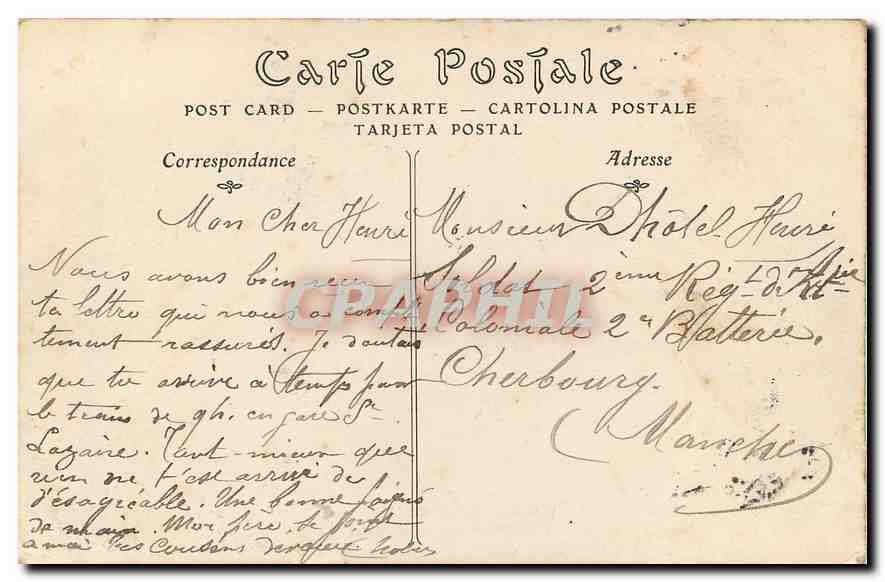 Carte Postale
POST CARD — POSTKARTE — CARTOLINA POSTALE
TARJETA POSTAL
Correspondance
Mon Cher Henri
Nous avons bien reçu
ta lettre qui nous a complè
tement rassurés. Je doutais
que tu arrive à temps pour
le train de 9h. en gare St
Lazaire. Tant-mieux que
rien ne t'est arrivé de
d'ésagréable. Une bonne
de main. Mon père se joint
a moi tes cousins
Adresse
Monsieur Dhôtel Henri
Soldat 2ème Régt. d'Artie
Coloniale 2e Batterie.
Cherbourg.
(Manche)
CPAPHIL